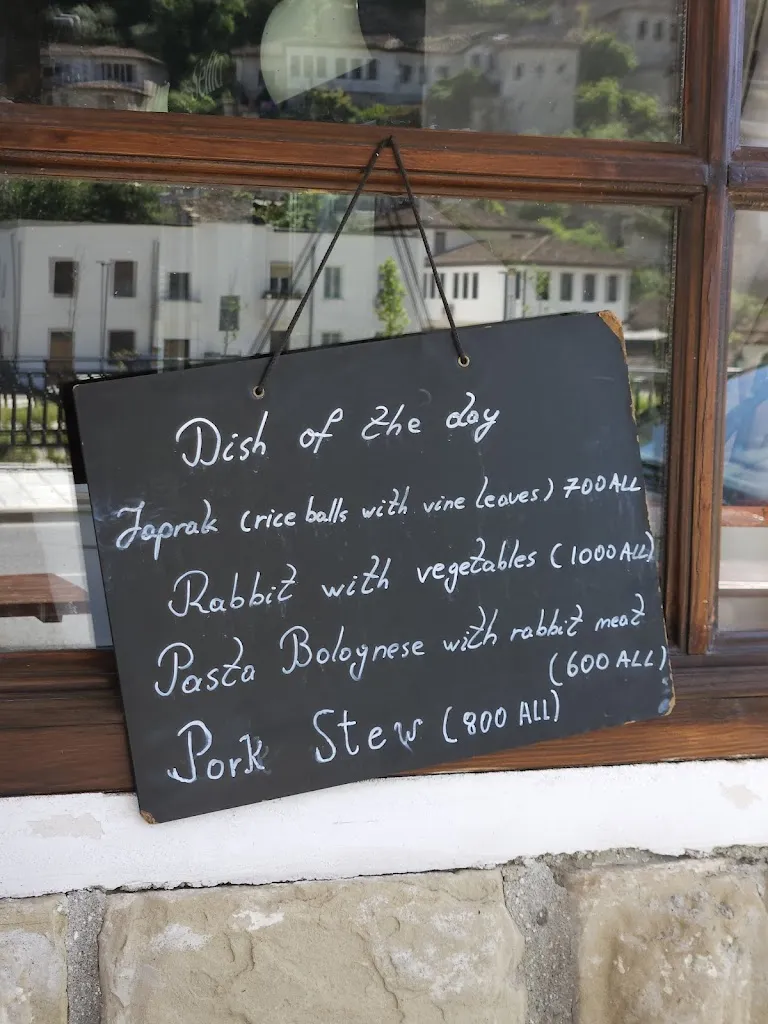 Dish of the day
Japrak (rice balls with vine leaves) 700 ALL
Rabbit with vegetables (1000 ALL)
Pasta Bolognese with rabbit meat
(600 ALL)
Pork Stew (800 ALL)